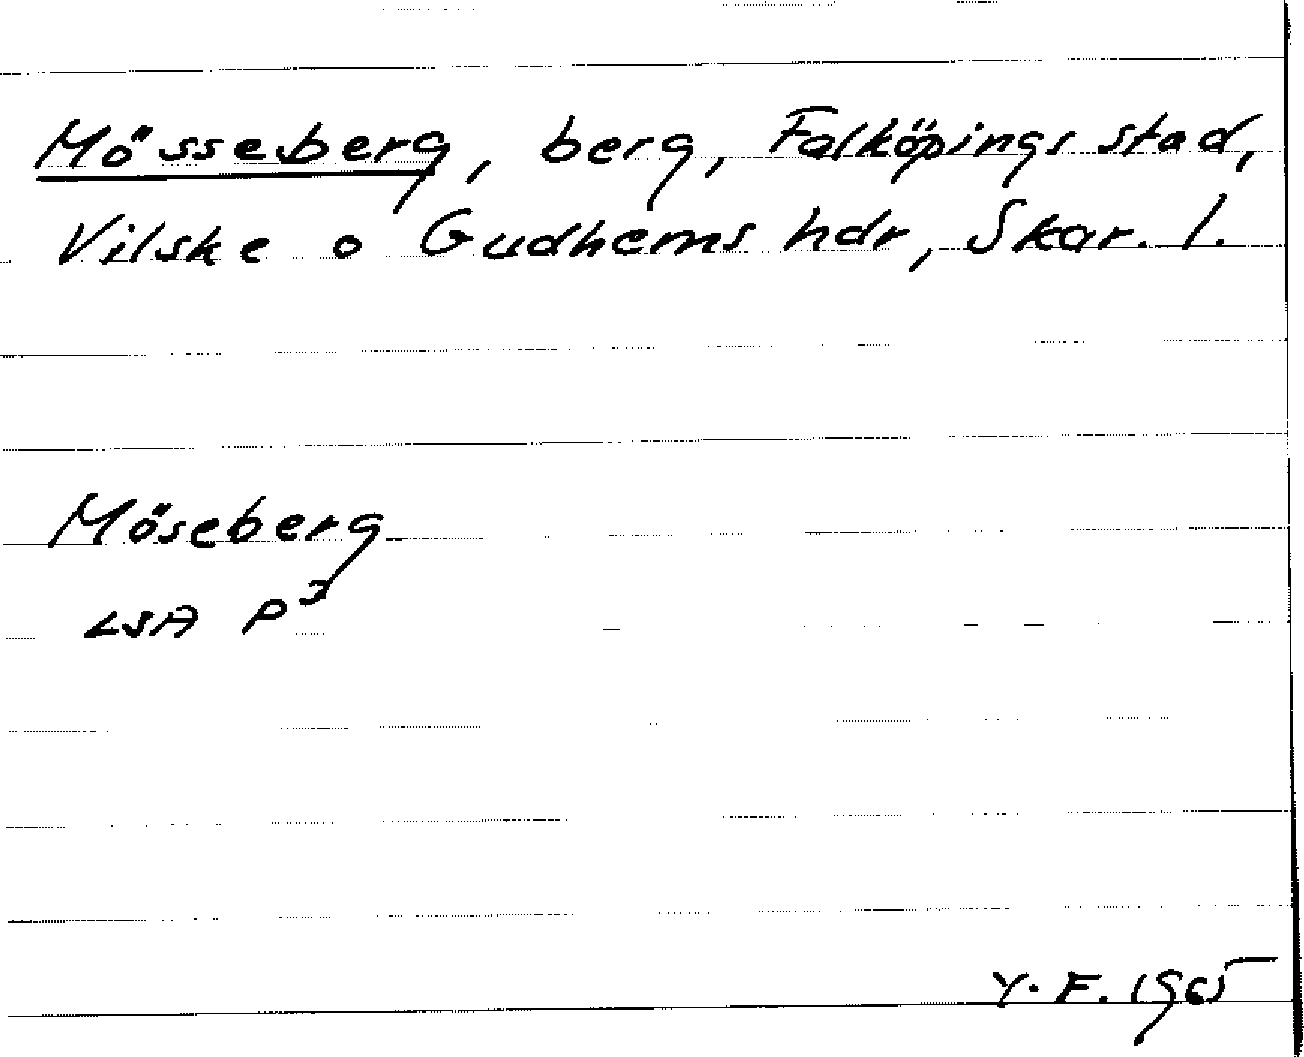 Mösseberg, berg, Falköpings stad,
Vilske o Gudhems hdr, Skar. l.
Möseberg
LSA P³
Y. F. 1965